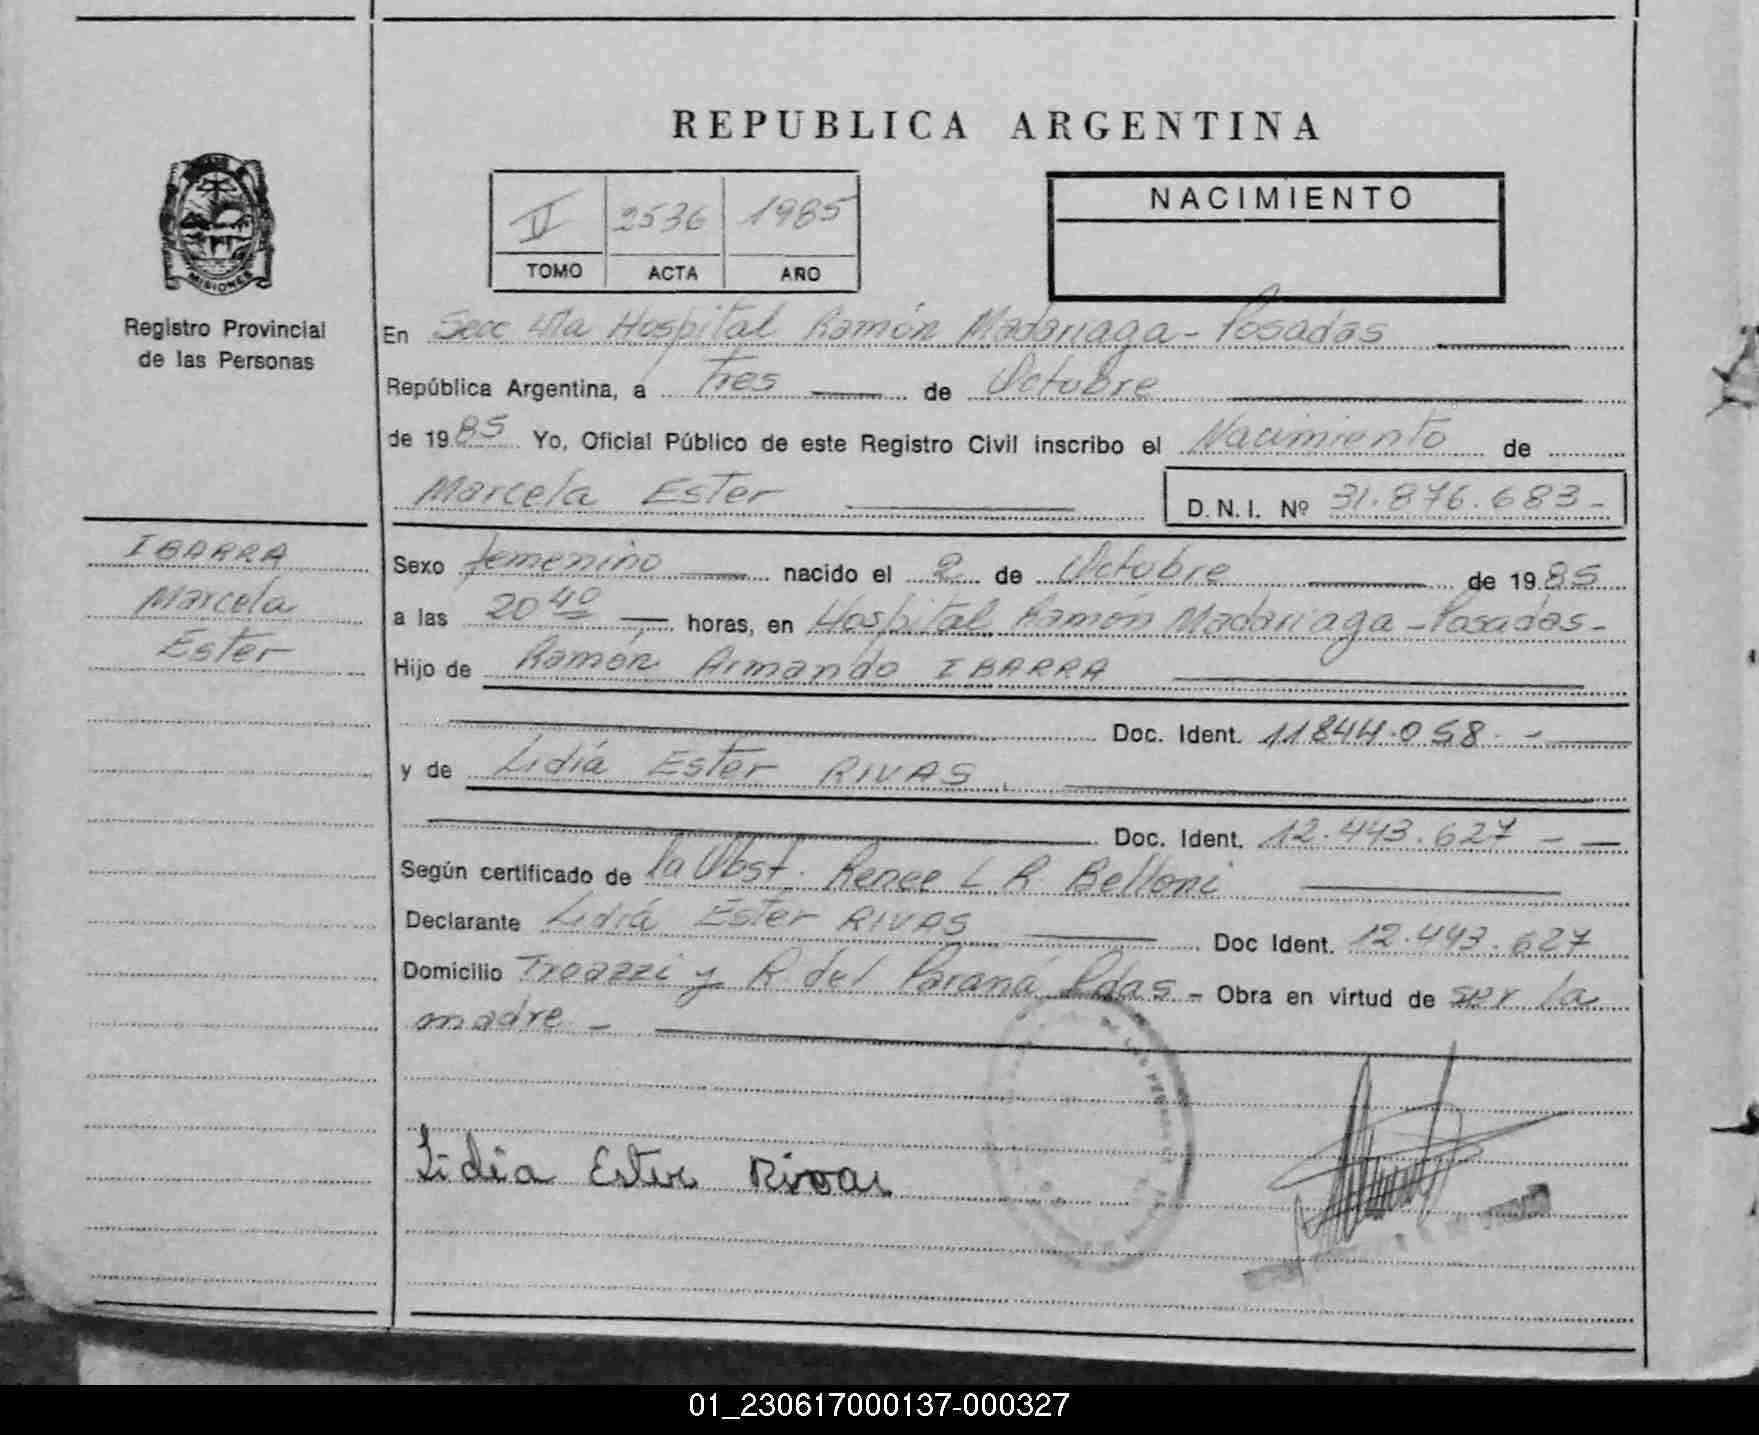 REPUBLICA ARGENTINA
NACIMIENTO
II 2536 1985
TOMO ACTA AÑO
MISIONES
Registro Provincial
de las Personas
En Secc 4ta Hospital Ramón Madariaga - Posadas
República Argentina, a Tres de Octubre
de 1985 Yo, Oficial Público de este Registro Civil inscribo el Nacimiento de
Marcela Ester D.N.I. Nº 31.876.683-
IBARRA
Marcela
Ester
Sexo femenino nacido el 2 de Octubre de 1985
a las 20 40 horas, en Hospital Ramón Madariaga - Posadas-
Hijo de Ramón Armando IBARRA
Doc. Ident. 11844.058. -
y de Lidia Ester RIVAS
Doc. Ident. 12.443.627 -
Según certificado de la Obst. Renee L R. Belloni
Declarante Lidia Ester RIVAS Doc Ident. 12.443.627
Domicilio y R. del Paraná Pdas - Obra en virtud de ser la
madre -
Lidia Ester Rivas
01_230617000137-000327